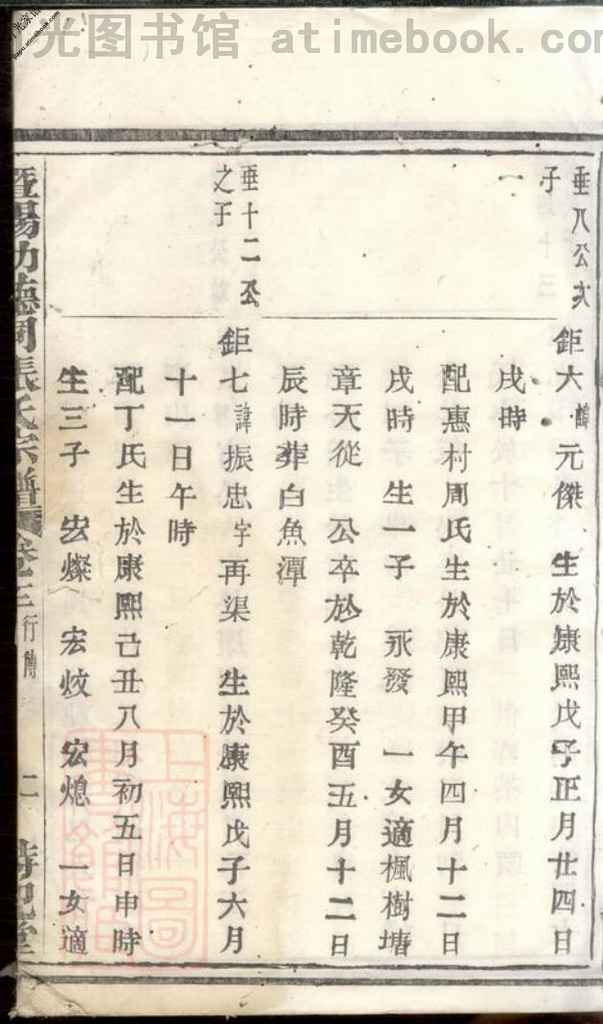 光图书馆 atimebook.com
垂八公次
子
一
鉅六諱元傑 生於康熙戊子正月廿四日
戌時
配惠村周氏生於康熙甲午四月十二日
戌時 生一子 永發 一女適楓樹塘
章天從 公卒於乾隆癸酉五月十二日
辰時葬白魚潭
垂十二公
之子
鉅七諱振忠字再渠 生於康熙戊子六月
十一日午時
配丁氏生於康熙己丑八月初五日申時
生三子 宏燦 宏炆 宏熄 一女適
暨陽 張氏宗譜 卷之三 行傳 二
上海圖書館藏